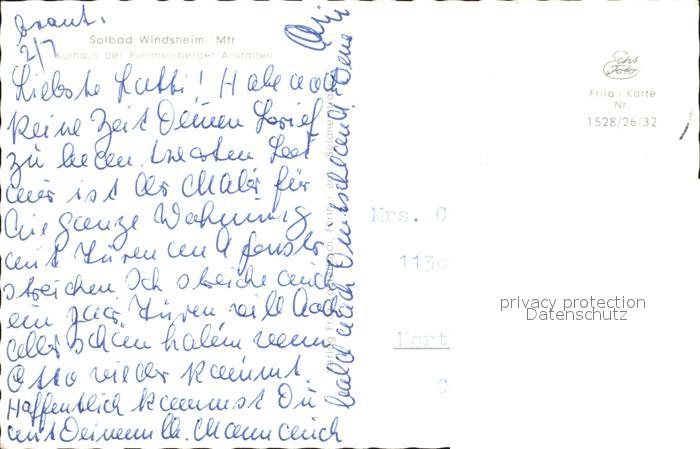 braut.
2/7
Solbad Windsheim Mfr
Kurhaus der Rummelsberger Anstalten
Liebste Katti! Habe noch
keine Zeit Deinen Brief
zu
mir ist der Maler für
die ganze Wohnung
mit Türen und Fenster
streichen Ich streiche auch
ein paar Türen will doch
alles schön haben wenn
Otto wieder kommt
Hoffentlich kommst Du
mit Deinem lb. Mann auch
bald nach Deutschland. Deine
Echt
Foto
Frila - Karte
Nr.
1528/26/32
Mrs. C
1130
privacy protection
Datenschutz